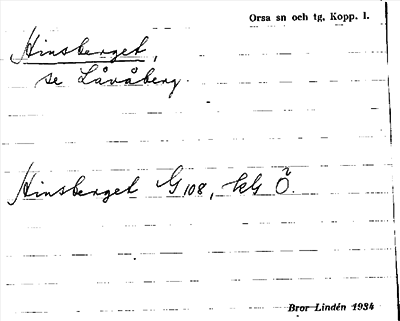 Orsa sn och tg, Kopp. l.
Hinsberget,
se Låvåberg.
Hinsberget G 108, kG Ö
Bror Lindén 1934